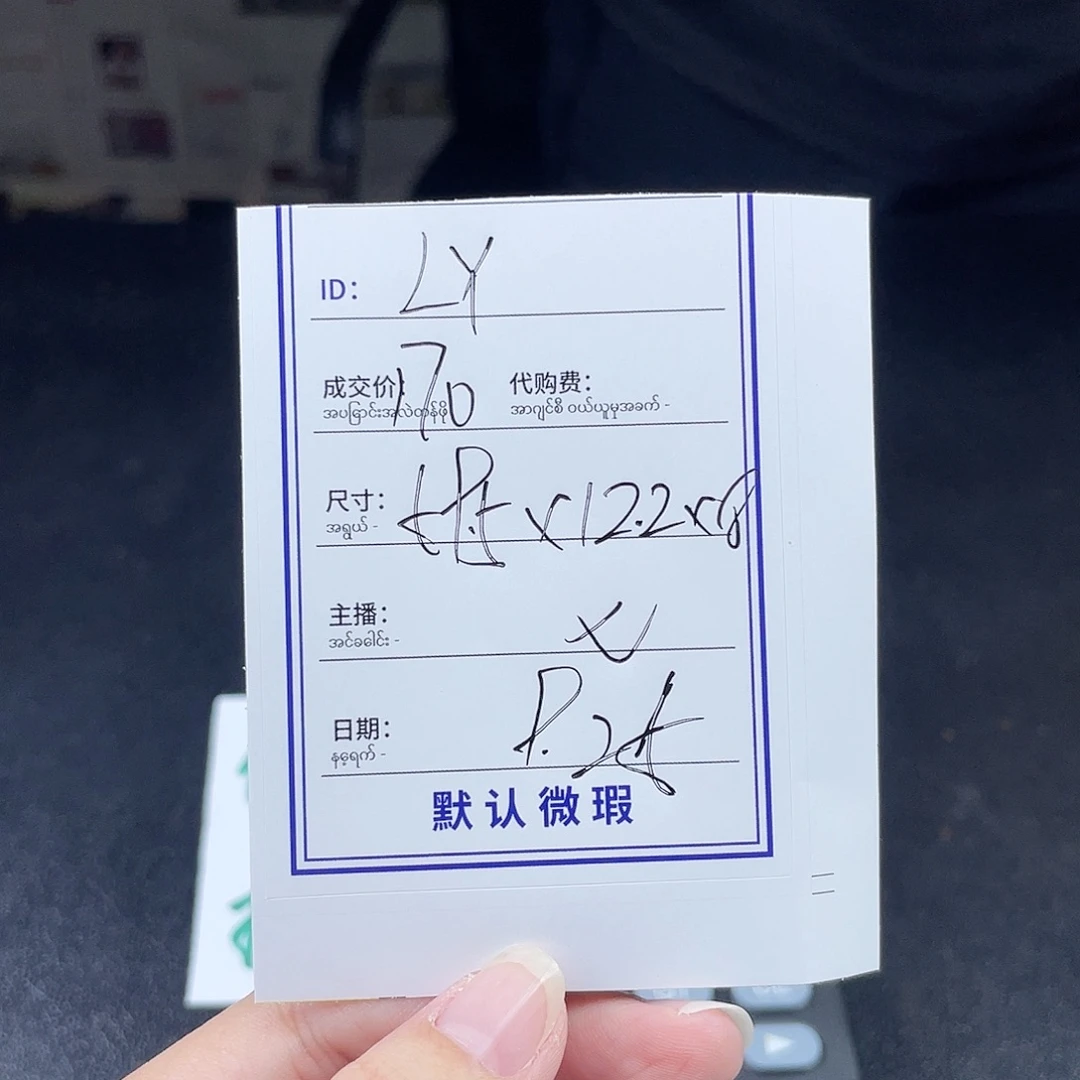 ID: LY
成交价: 170 代购费:
အပြောင်းအလဲတန်ဖိုး အာဂျင်စီ ဝယ်ယူမှုအခက် -
尺寸: x12.2x8
အရွယ် -
主播: 七
အင်ခေါင်း -
日期: 8.25
နေ့ရက် -
默认微瑕